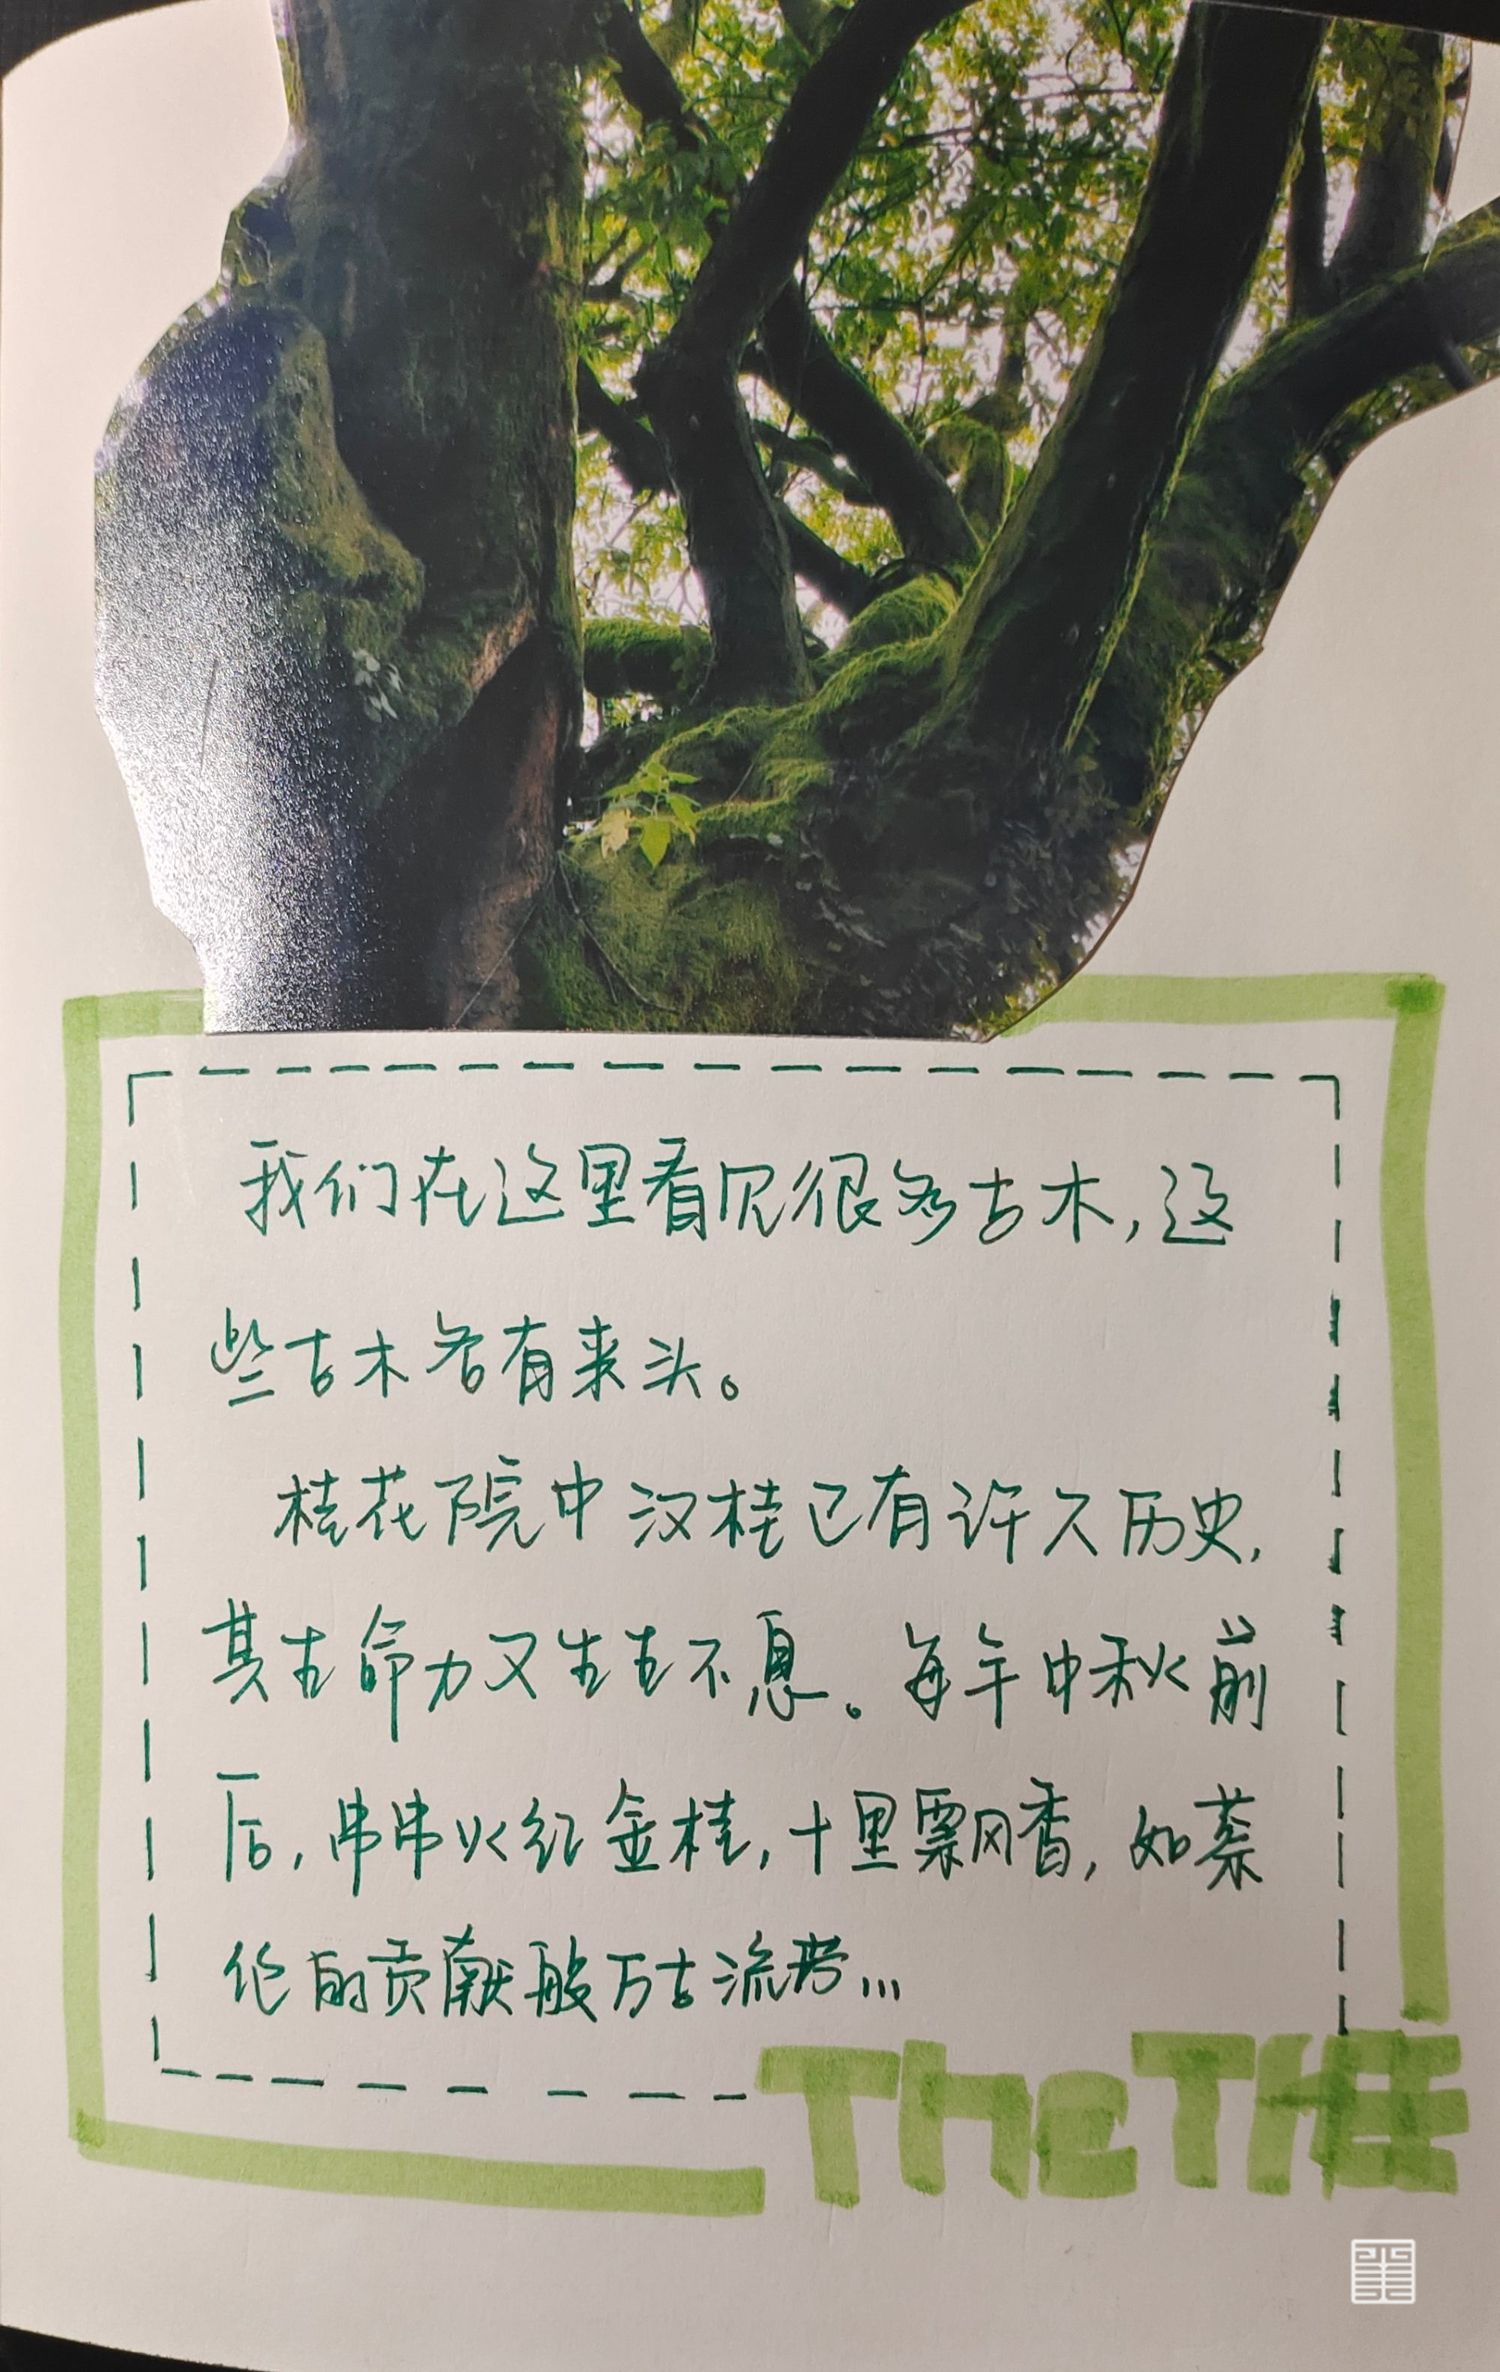 我们在这里看见很多古木,这
些古木各有来头。
桂花院中汉桂已有许久历史,
其生命力又生生不息。每年中秋前
后,串串火红金桂,十里飘香,如蔡
伦的贡献般万古流芳...
The T